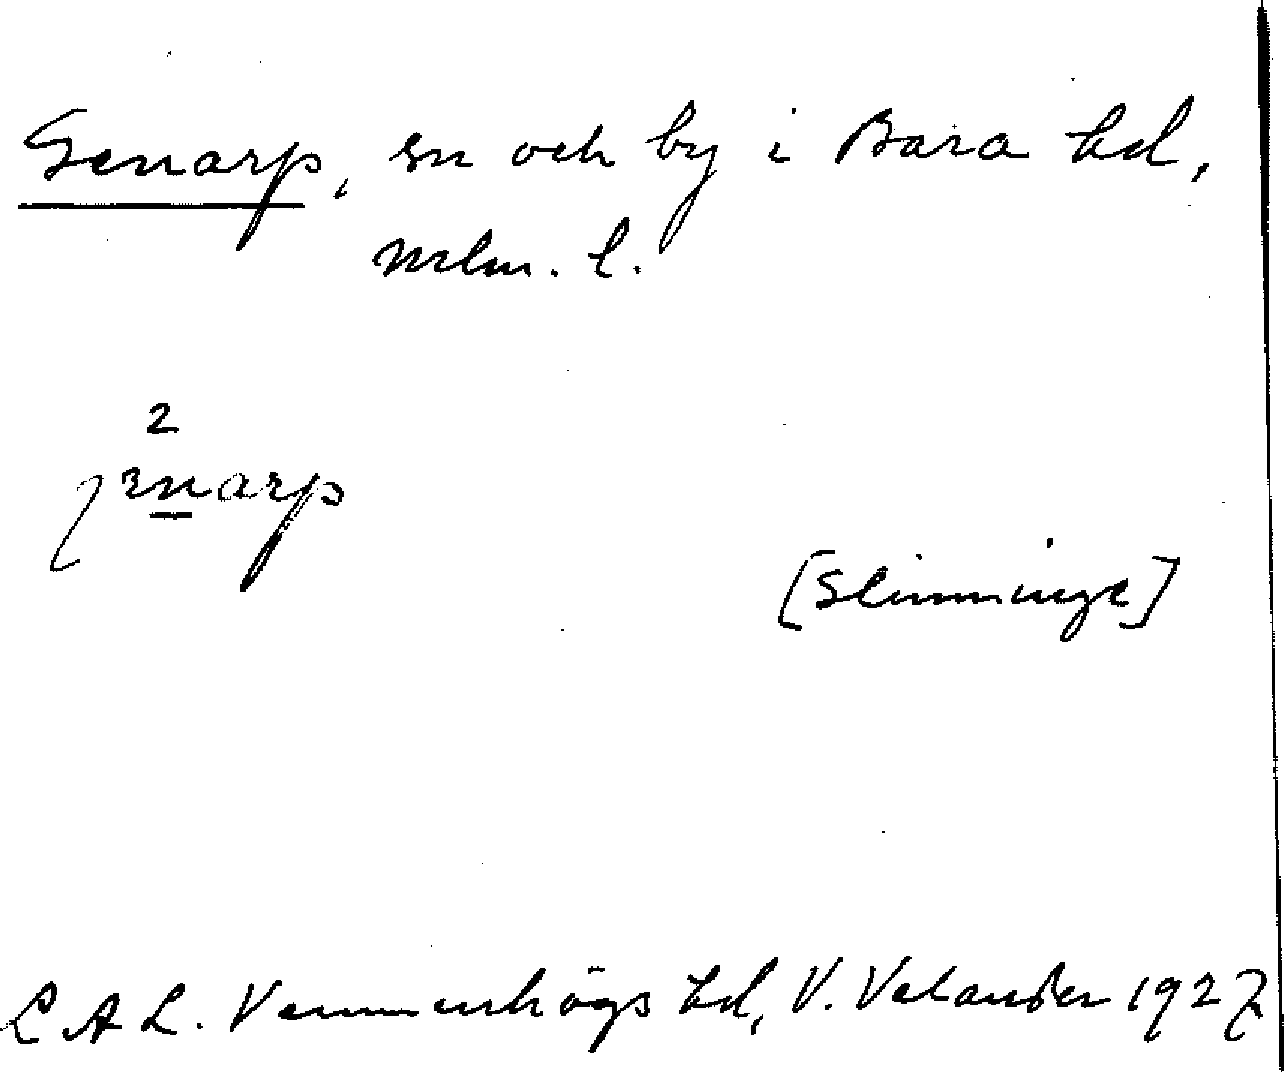 Genarp, sn och by i Bara hd,
Mlm. l.
2
jenarp
[Slimminge]
L A L. Vemmenhögs hd, V. Velander 1927